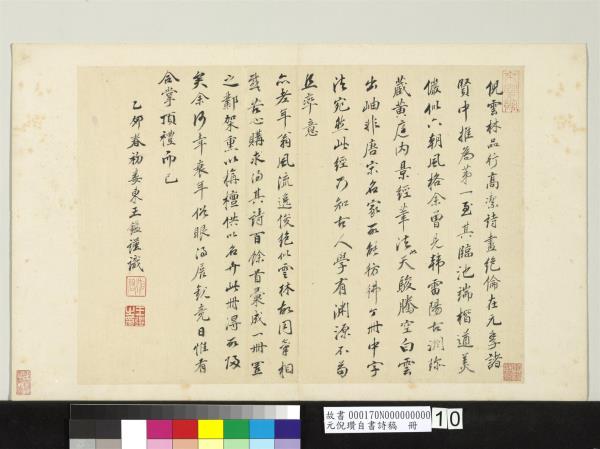 倪雲林品行高潔詩畫絕倫在元季諸
賢中推為第一至其臨池端楷遒美
儼似六朝風格余曾見韓雷陽古洲珍
藏黃庭內景經筆法似天駿騰空白雲
出岫非唐宋名家所能彷彿今冊中字
法宛然此經乃知古人學有淵源不苟
且率意
老年翁風流逸俊絕似雲林故同氣相
苦心購求得其詩百餘首彙成一冊置
之鄴架熏以栴檀供以名卉此冊得所歸
矣余何幸衰年俗眼得展玩竟日惟有
合掌頂禮而已
乙卯春初婁東王鑑謹識
故書000170N000000000
元倪瓚自書詩稿 冊
10